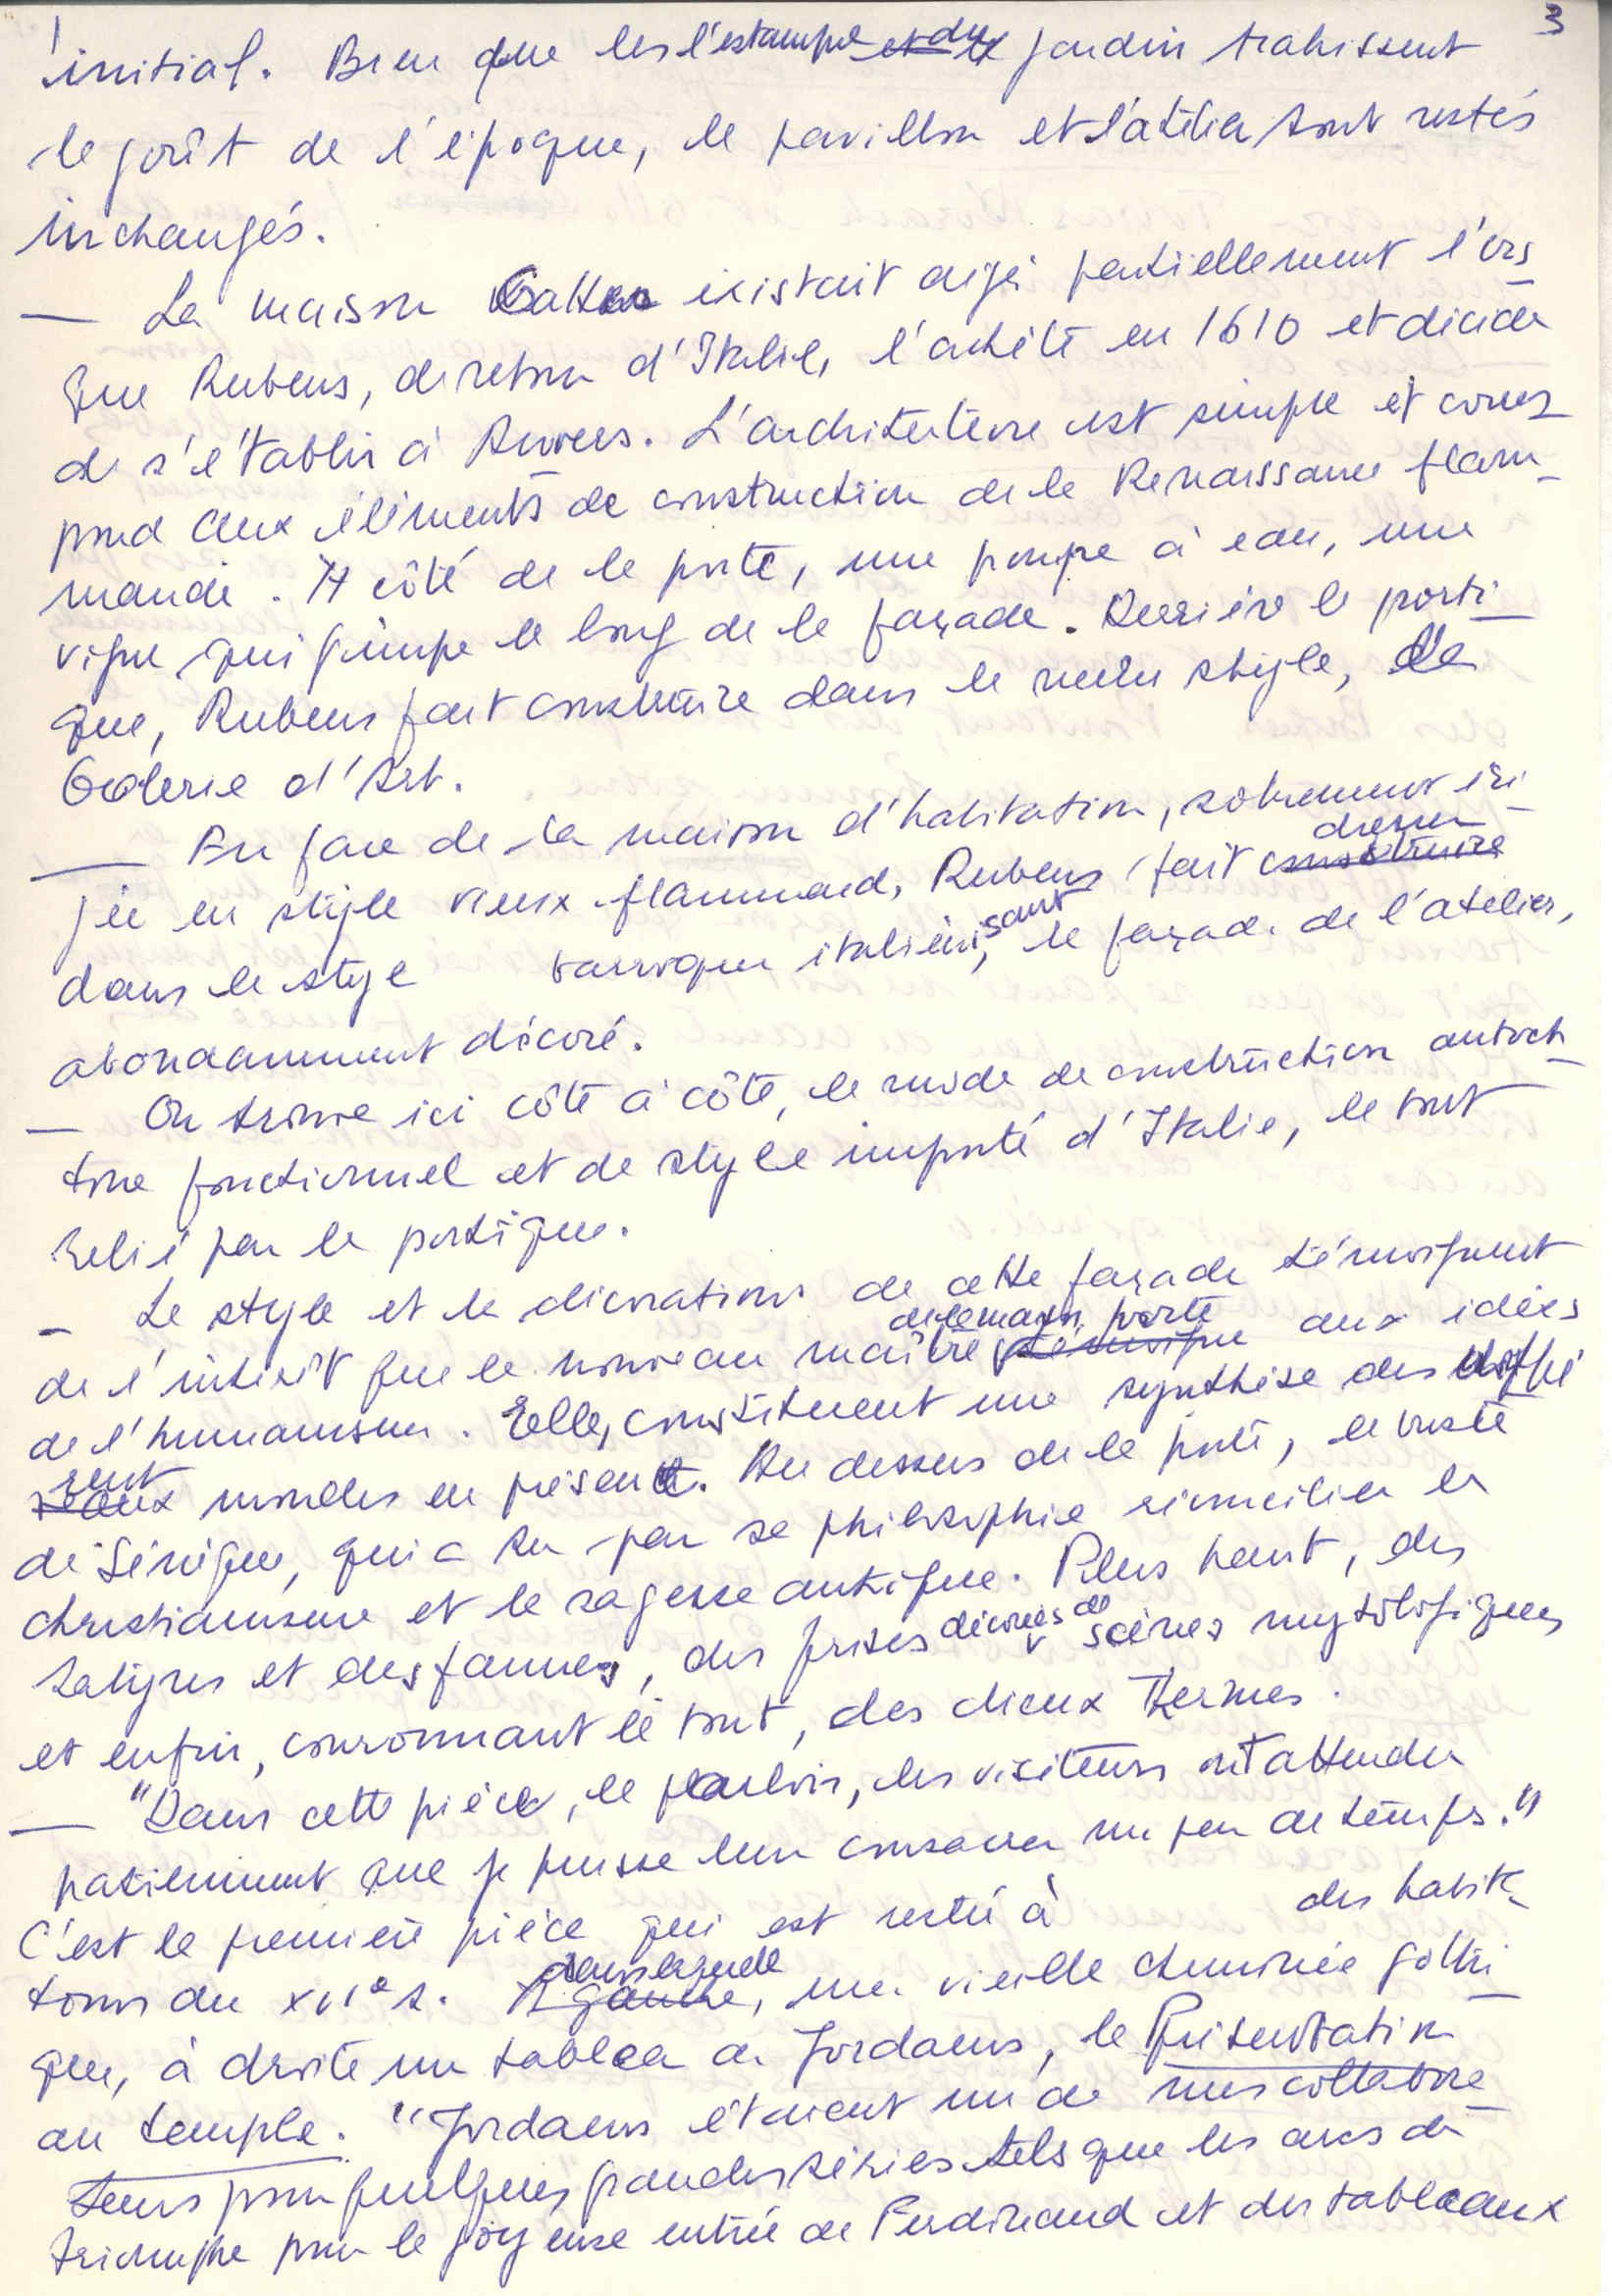 3
initial. Bien que les l'estampe et du jardin trahissent
le goût de l'époque, le pavillon et l'atelier sont restés
inchangés.
— La maison existait déjà partiellement l'ors
que Rubens, de retour d'Italie, l'achète en 1610 et décide
de s'établir à Anvers. L'architecture est simple et corres
pond aux éléments de construction de la Renaissance flam-
mande. A côté de la porte, une pompe à eau, une
vigne qui grimpe le long de la façade. Derrière le porti-
que, Rubens fait construire dans le même style, la
Galerie d'Art.
— En face de la maison d'habitation, sobrement éri-
gée en style vieux flammand, Rubens fait construire dresser
dans le style barroque italienisant, le façade de l'atelier,
abondamment décoré.
— On trouve ici côte à côte, le mode de construction autoch-
tone fonctionnel et de style importé d'Italie, le tout
relié par le portique.
- Le style et la décorations de cette façade témoignent
de l'intérêt que le nouveau maître de le maison porte témoigne aux idées
de l'humanisme. Elles constituent une synthèse des diffé
rent mondes en présence. Au dessus de la porte, le buste
de Sénèque, qui a su par sa philosophie réconcilier le
christianisme et la sagesse antique. Plus haut, des
satyres et des faunes, des frises décorées de scènes mytologiques
et enfin, couronnant le tout, des dieux Hermes.
— "Dans cette pièce, le parloir, les visiteurs ont attendu
patiemment que je puisse leur consacrer un peu de temps."
C'est la première pièce qui est resté à des habita-
tions du XVIe s. A gauche dans laquelle, une vieille cheminée gothi-
que, à droite un tableau de Jordaens, la Présentation
au temple. "Jordaens étaient un de mes collabora-
teurs pour quelques grandes séries tels que les arcs de
triomphe pour la joyeuse entrée de Ferdinand et des tableaux